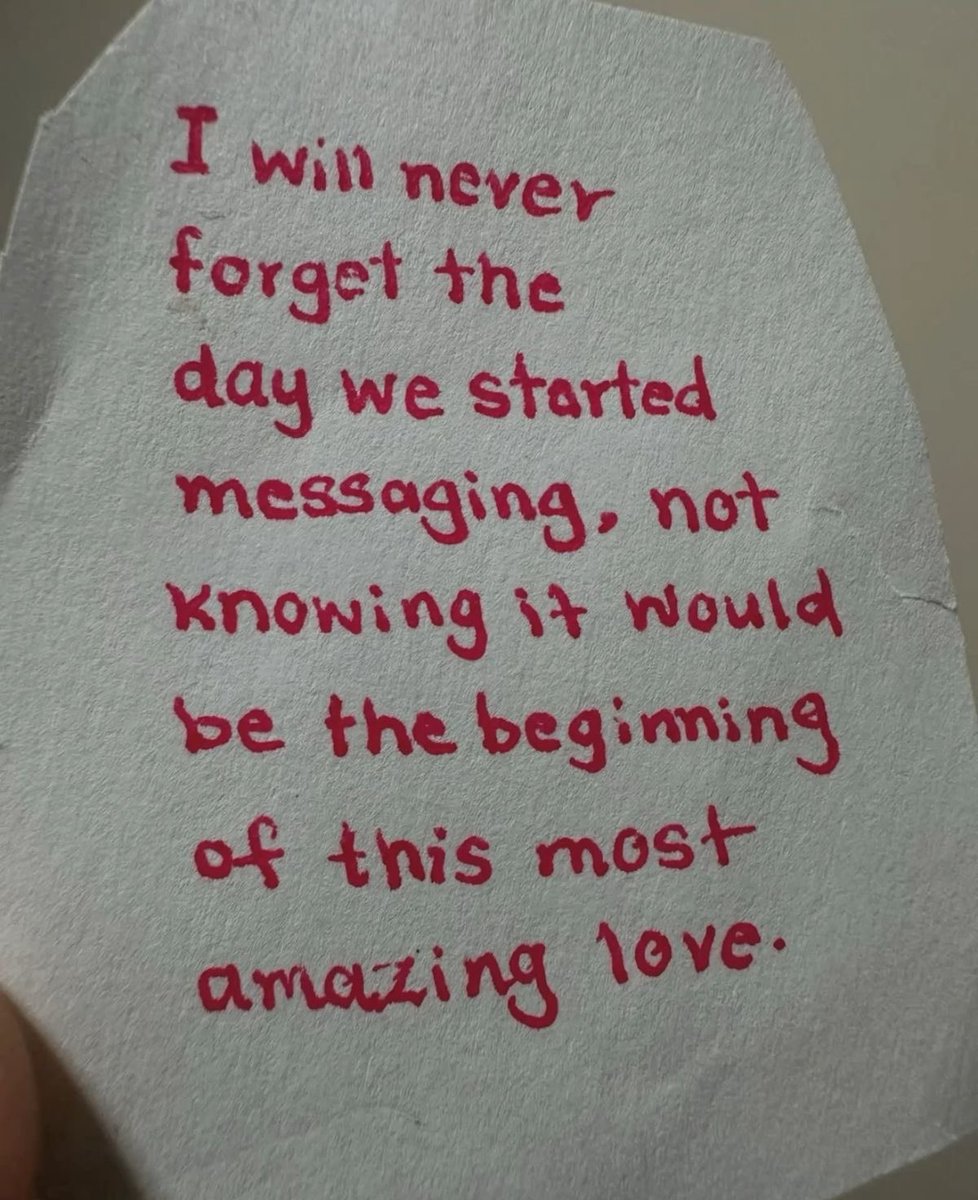 I will never
forget the
day we started
messaging, not
knowing it would
be the beginning
of this most
amazing love.